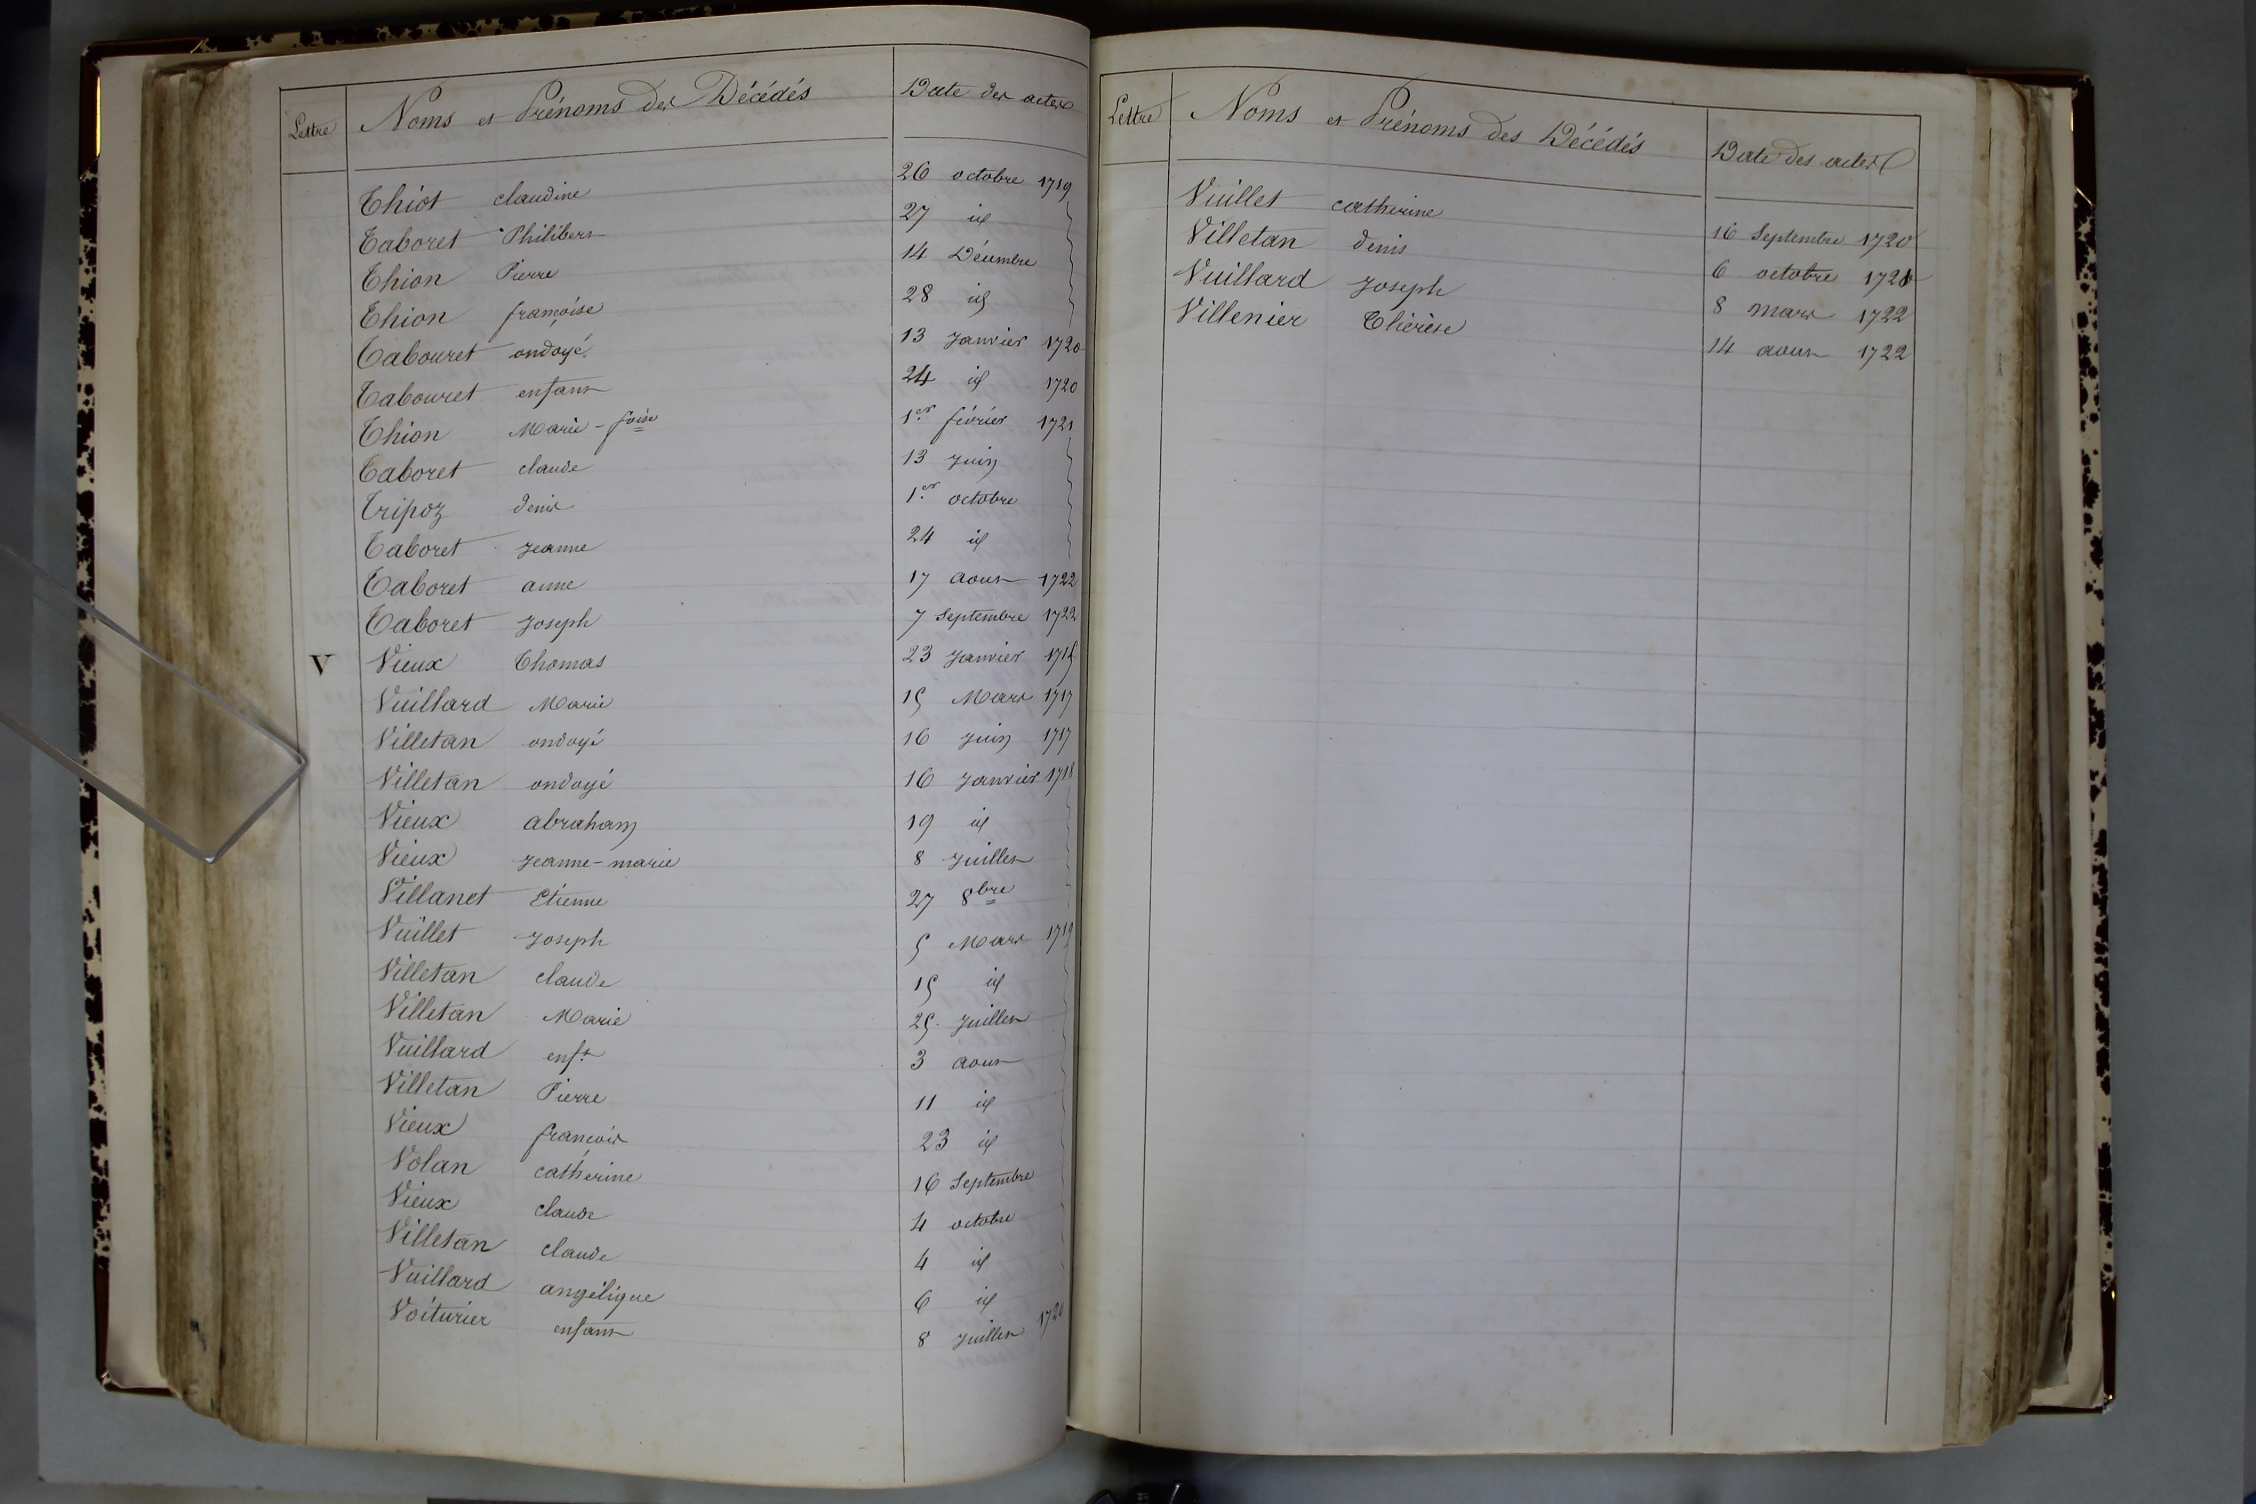 Lettre Noms et Prénoms des Décédés Date des actes
Thiot claudine 26 octobre 1719
Taboret Philibert 27 id
Thion Pierre 14 Décembre
Thion françoise 28 id
Tabouret ondoyé 13 Janvier 1720
Tabouret enfant 24 id 1720
Thion Marie-foise 1er février 1721
Taboret claude 13 Juin
Tripoz denis 1er octobre
Taboret Jeanne 24 id
Taboret anne 17 aout 1722
Taboret Joseph 7 Septembre 1722
V Vieux Thomas 23 Janvier 1715
Vuillard Marie 15 Mars 1717
Villetan ondoyé 16 Juin 1717
Villetan ondoyé 16 Janvier 1718
Vieux abraham 19 id
Vieux Jeanne-marie 8 Juillet
Villanet Etienne 27 8bre
Vuillet Joseph 5 Mars 1719
Villetan claude 15 id
Villetan Marie 25 Juillet
Vuillard enft 3 aout
Villetan Pierre 11 id
Vieux françois 23 id
Volan cathérine 16 Septembre
Vieux claude 4 octobre
Villetan claude 4 id
Vuillard angélique 6 id
Voiturier enfant 8 Juillet 1720
Lettre Noms et Prénoms des Décédés Date des actes
Vuillet catherine 16 Septembre 1720
Villetan denis 6 octobre
Vuillard Joseph 8 mars 1722
Villenier Thérèse 14 aout 1722